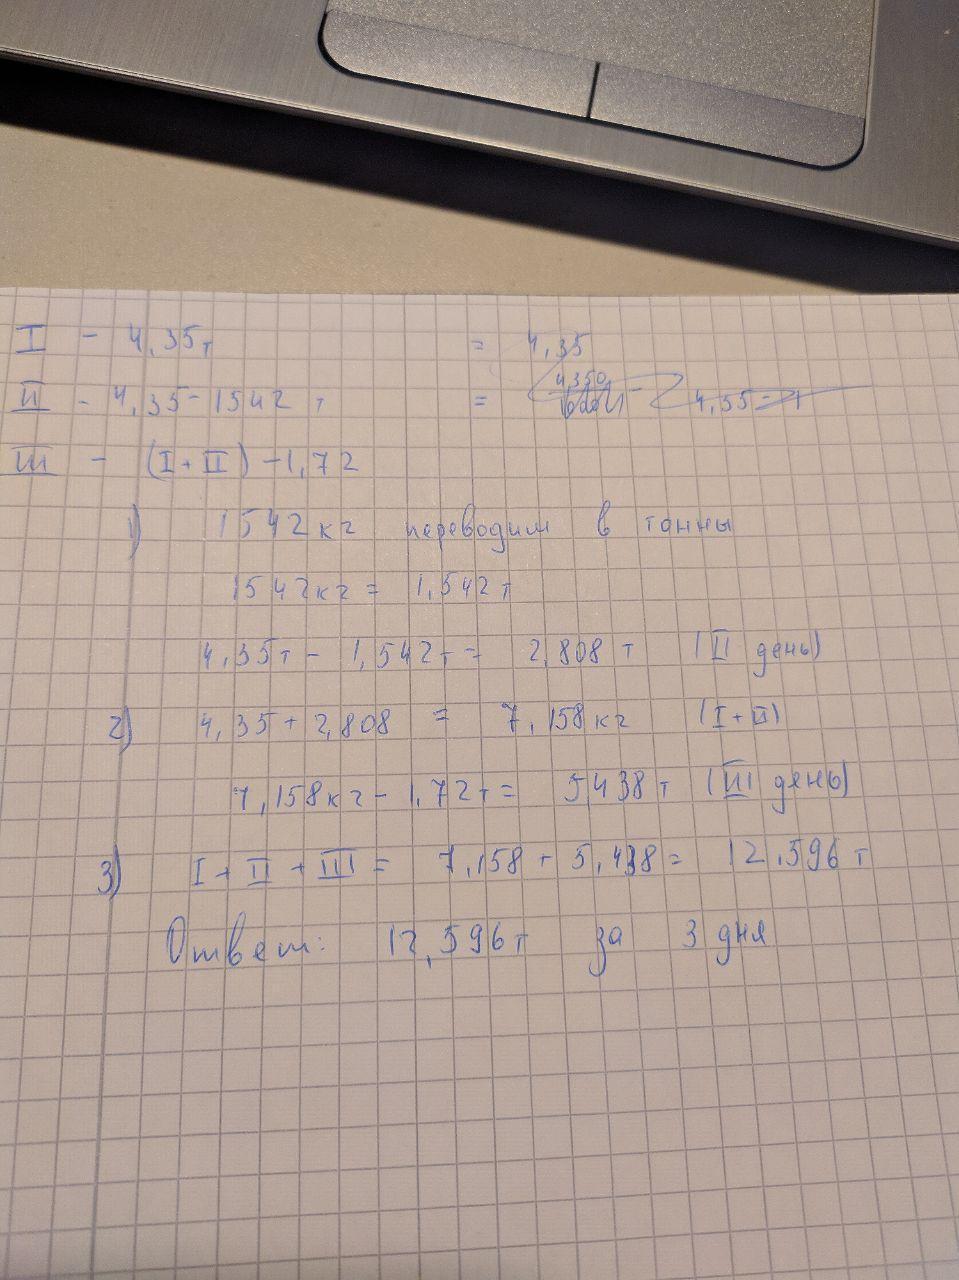 I - 4,35т = 4,35
II - 4,35-1542 т = 4350
III - (I + II) -1,72
1) 1542кг переводим в тонны
1542кг = 1,542т
4,35т - 1,542т = 2,808 т (II день)
2) 4,35 + 2,808 = 7,158кг (I + II)
7,158кг - 1,72т = 5438 т (III день)
3) I + II + III = 7,158 + 5,438 = 12,596 т
Ответ: 12,596т за 3 дня